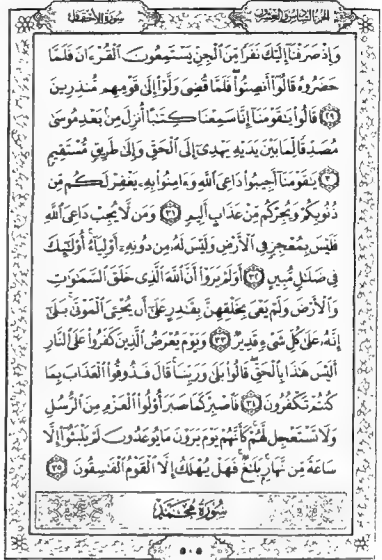 الجزء السادس والعشرون
سورة الأحقاف
وَإِذْ صَرَفْنَآ إِلَيْكَ نَفَرًا مِّنَ ٱلْجِنِّ يَسْتَمِعُونَ ٱلْقُرْءَانَ فَلَمَّا
حَضَرُوهُ قَالُوٓا۟ أَنصِتُوا۟ فَلَمَّا قُضِىَ وَلَّوْا۟ إِلَىٰ قَوْمِهِم مُّنذِرِينَ
٢٩ قَالُوا۟ يَٰقَوْمَنَآ إِنَّا سَمِعْنَا كِتَٰبًا أُنزِلَ مِنۢ بَعْدِ مُوسَىٰ
مُصَدِّقًا لِّمَا بَيْنَ يَدَيْهِ يَهْدِىٓ إِلَى ٱلْحَقِّ وَإِلَىٰ طَرِيقٍ مُّسْتَقِيمٍ
٣٠ يَٰقَوْمَنَآ أَجِيبُوا۟ دَاعِىَ ٱللَّهِ وَءَامِنُوا۟ بِهِۦ يَغْفِرْ لَكُم مِّن
ذُنُوبِكُمْ وَيُجِرْكُم مِّنْ عَذَابٍ أَلِيمٍ ٣١ وَمَن لَّا يُجِبْ دَاعِىَ ٱللَّهِ
فَلَيْسَ بِمُعْجِزٍ فِى ٱلْأَرْضِ وَلَيْسَ لَهُۥ مِن دُونِهِۦٓ أَوْلِيَآءُ أُو۟لَٰٓئِكَ
فِى ضَلَٰلٍ مُّبِينٍ ٣٢ أَوَلَمْ يَرَوْا۟ أَنَّ ٱللَّهَ ٱلَّذِى خَلَقَ ٱلسَّمَٰوَٰتِ
وَٱلْأَرْضَ وَلَمْ يَعْىَ بِخَلْقِهِنَّ بِقَٰدِرٍ عَلَىٰٓ أَن يُحْۦِىَ ٱلْمَوْتَىٰ بَلَىٰٓ
إِنَّهُۥ عَلَىٰ كُلِّ شَىْءٍ قَدِيرٌ ٣٣ وَيَوْمَ يُعْرَضُ ٱلَّذِينَ كَفَرُوا۟ عَلَى ٱلنَّارِ
أَلَيْسَ هَٰذَا بِٱلْحَقِّ قَالُوا۟ بَلَىٰ وَرَبِّنَا قَالَ فَذُوقُوا۟ ٱلْعَذَابَ بِمَا
كُنتُمْ تَكْفُرُونَ ٣٤ فَٱصْبِرْ كَمَا صَبَرَ أُو۟لُوا۟ ٱلْعَزْمِ مِنَ ٱلرُّسُلِ
وَلَا تَسْتَعْجِل لَّهُمْ كَأَنَّهُمْ يَوْمَ يَرَوْنَ مَا يُوعَدُونَ لَمْ يَلْبَثُوٓا۟ إِلَّا
سَاعَةً مِّن نَّهَارٍ بَلَٰغٌ فَهَلْ يُهْلَكُ إِلَّا ٱلْقَوْمُ ٱلْفَٰسِقُونَ ٣٥
سُورَةُ مُحَمَّدٍ
٥٠٥